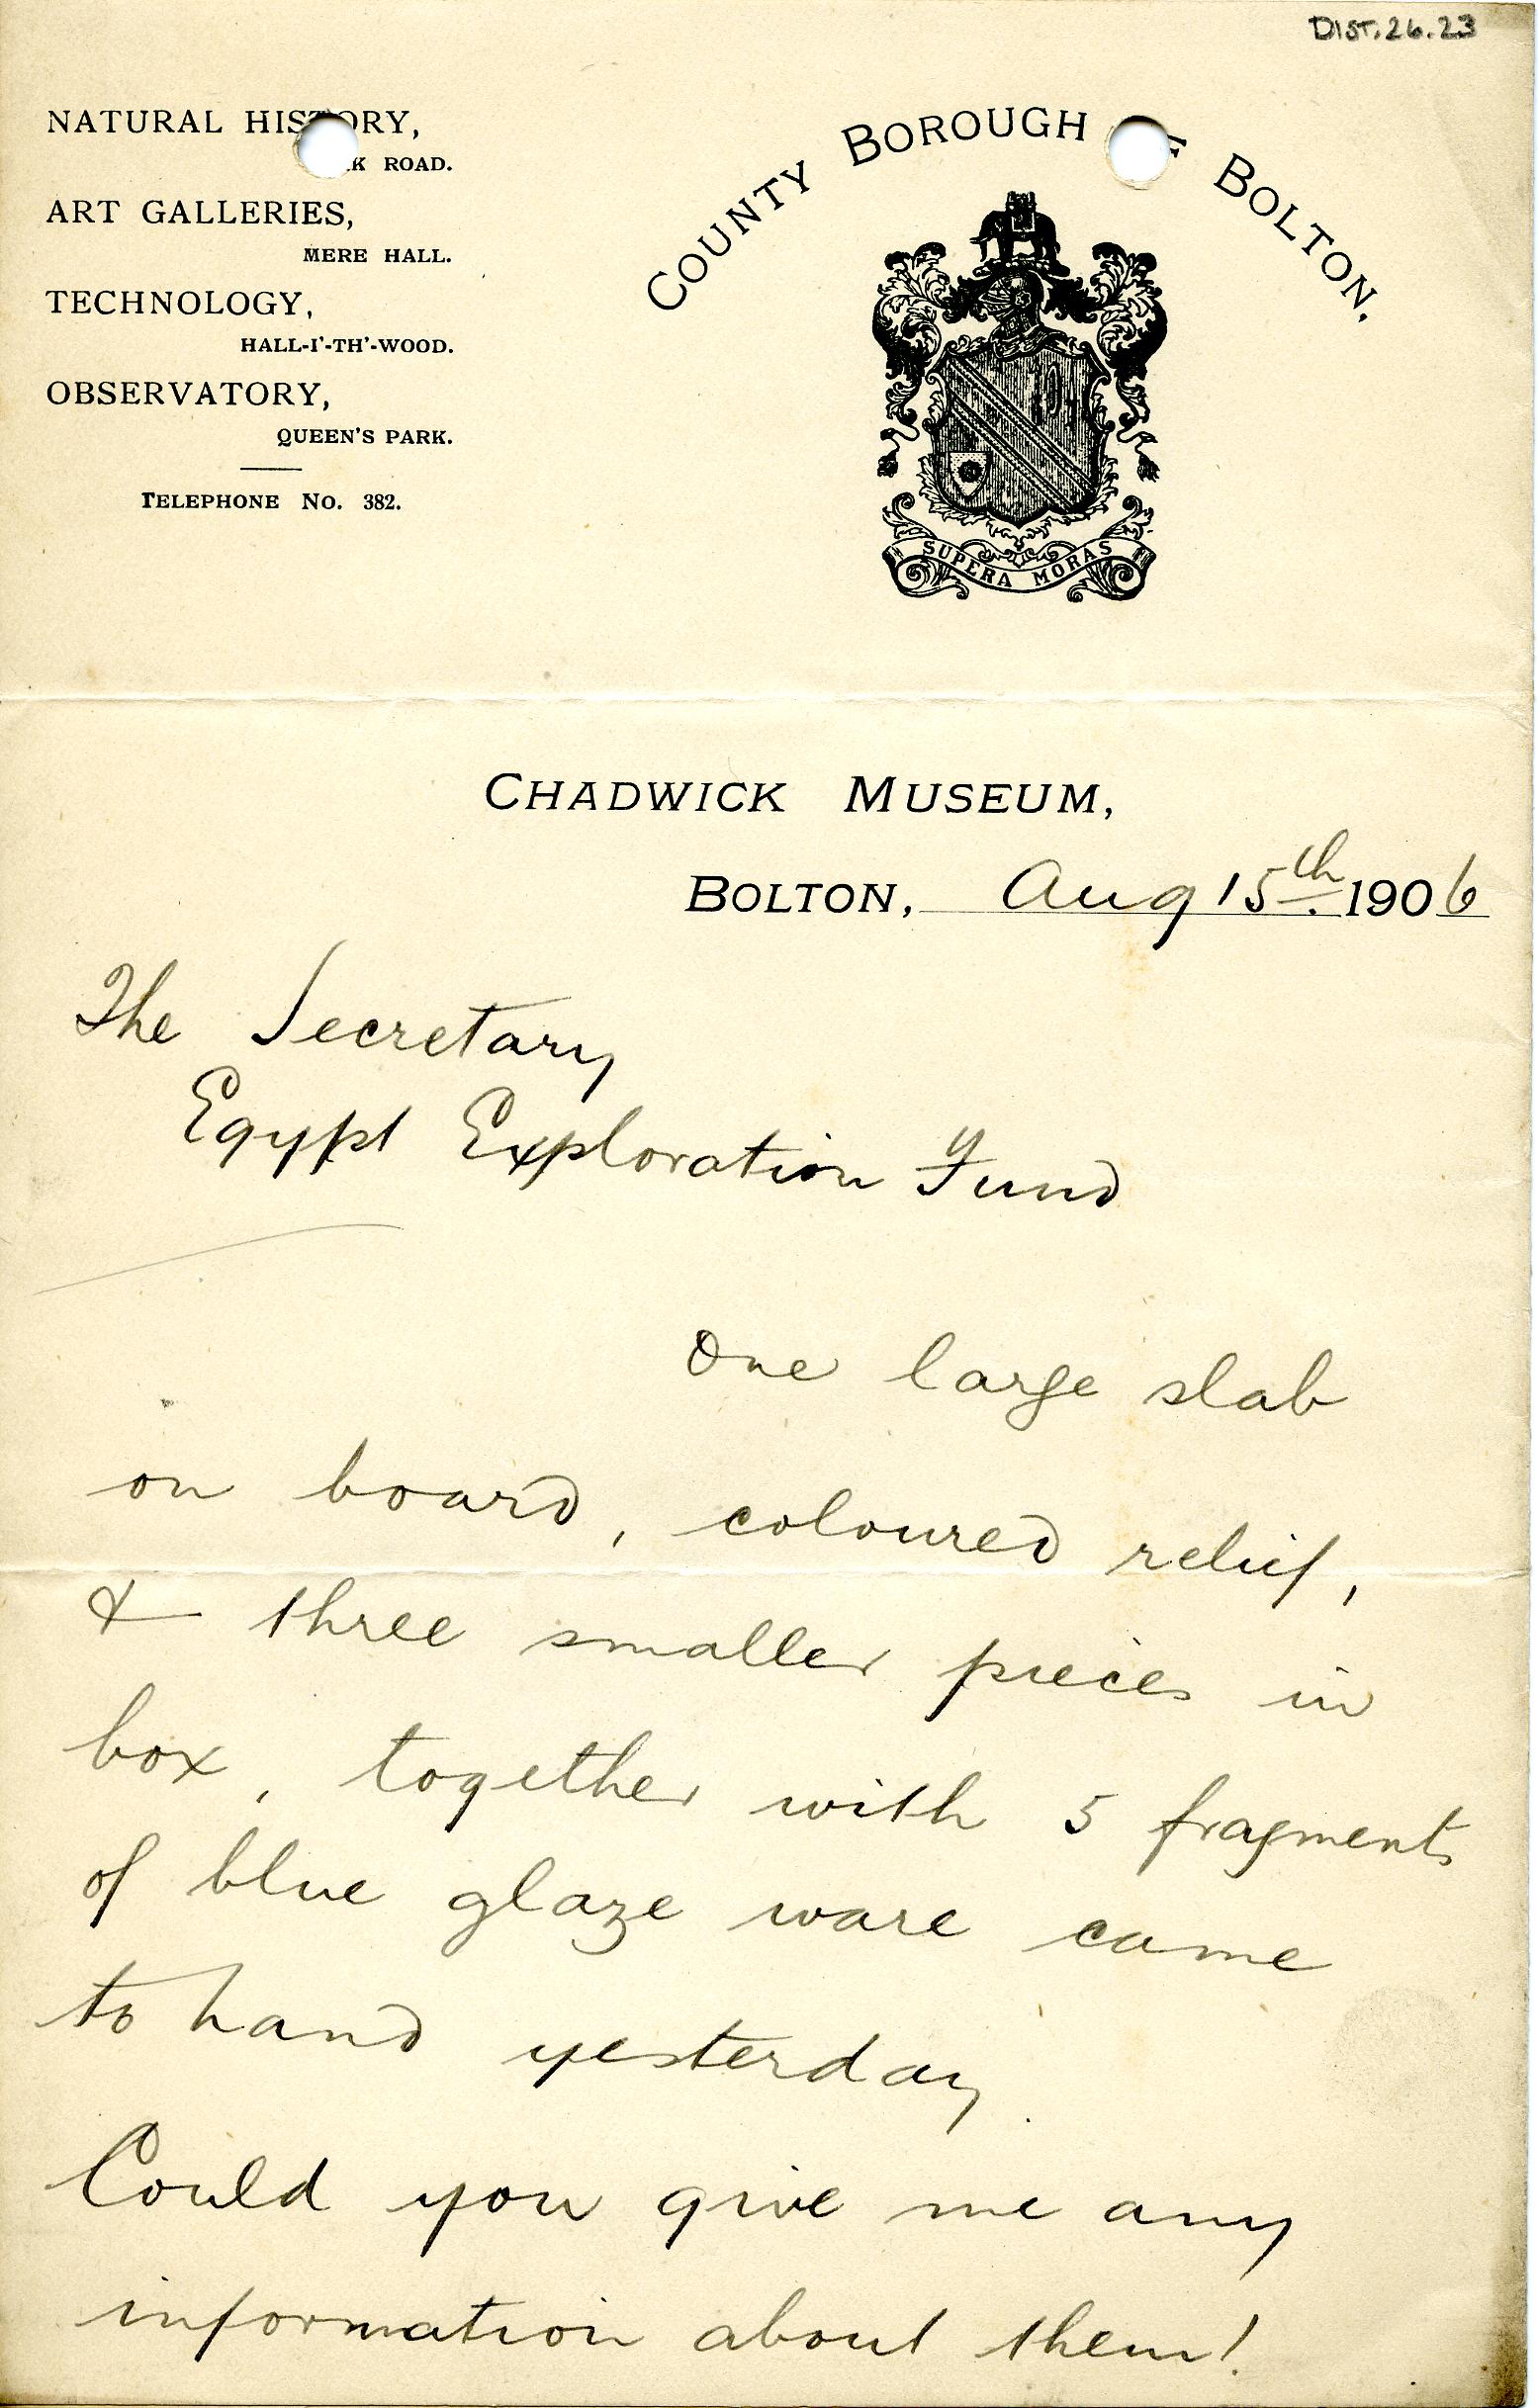 DIST.26.23
NATURAL HISTORY,
K ROAD.
ART GALLERIES,
MERE HALL.
TECHNOLOGY,
HALL-I'-TH'-WOOD.
OBSERVATORY,
QUEEN'S PARK.
TELEPHONE No. 382.
COUNTY BOROUGH OF BOLTON.
SUPERA MORAS
CHADWICK MUSEUM,
BOLTON, Aug 15th. 1906
The Secretary
Egypt Exploration Fund
One large slab
on board, coloured relief,
& three smaller pieces in
box, together with 5 fragments
of blue glaze ware came
to hand yesterday.
Could you give me any
information about them!